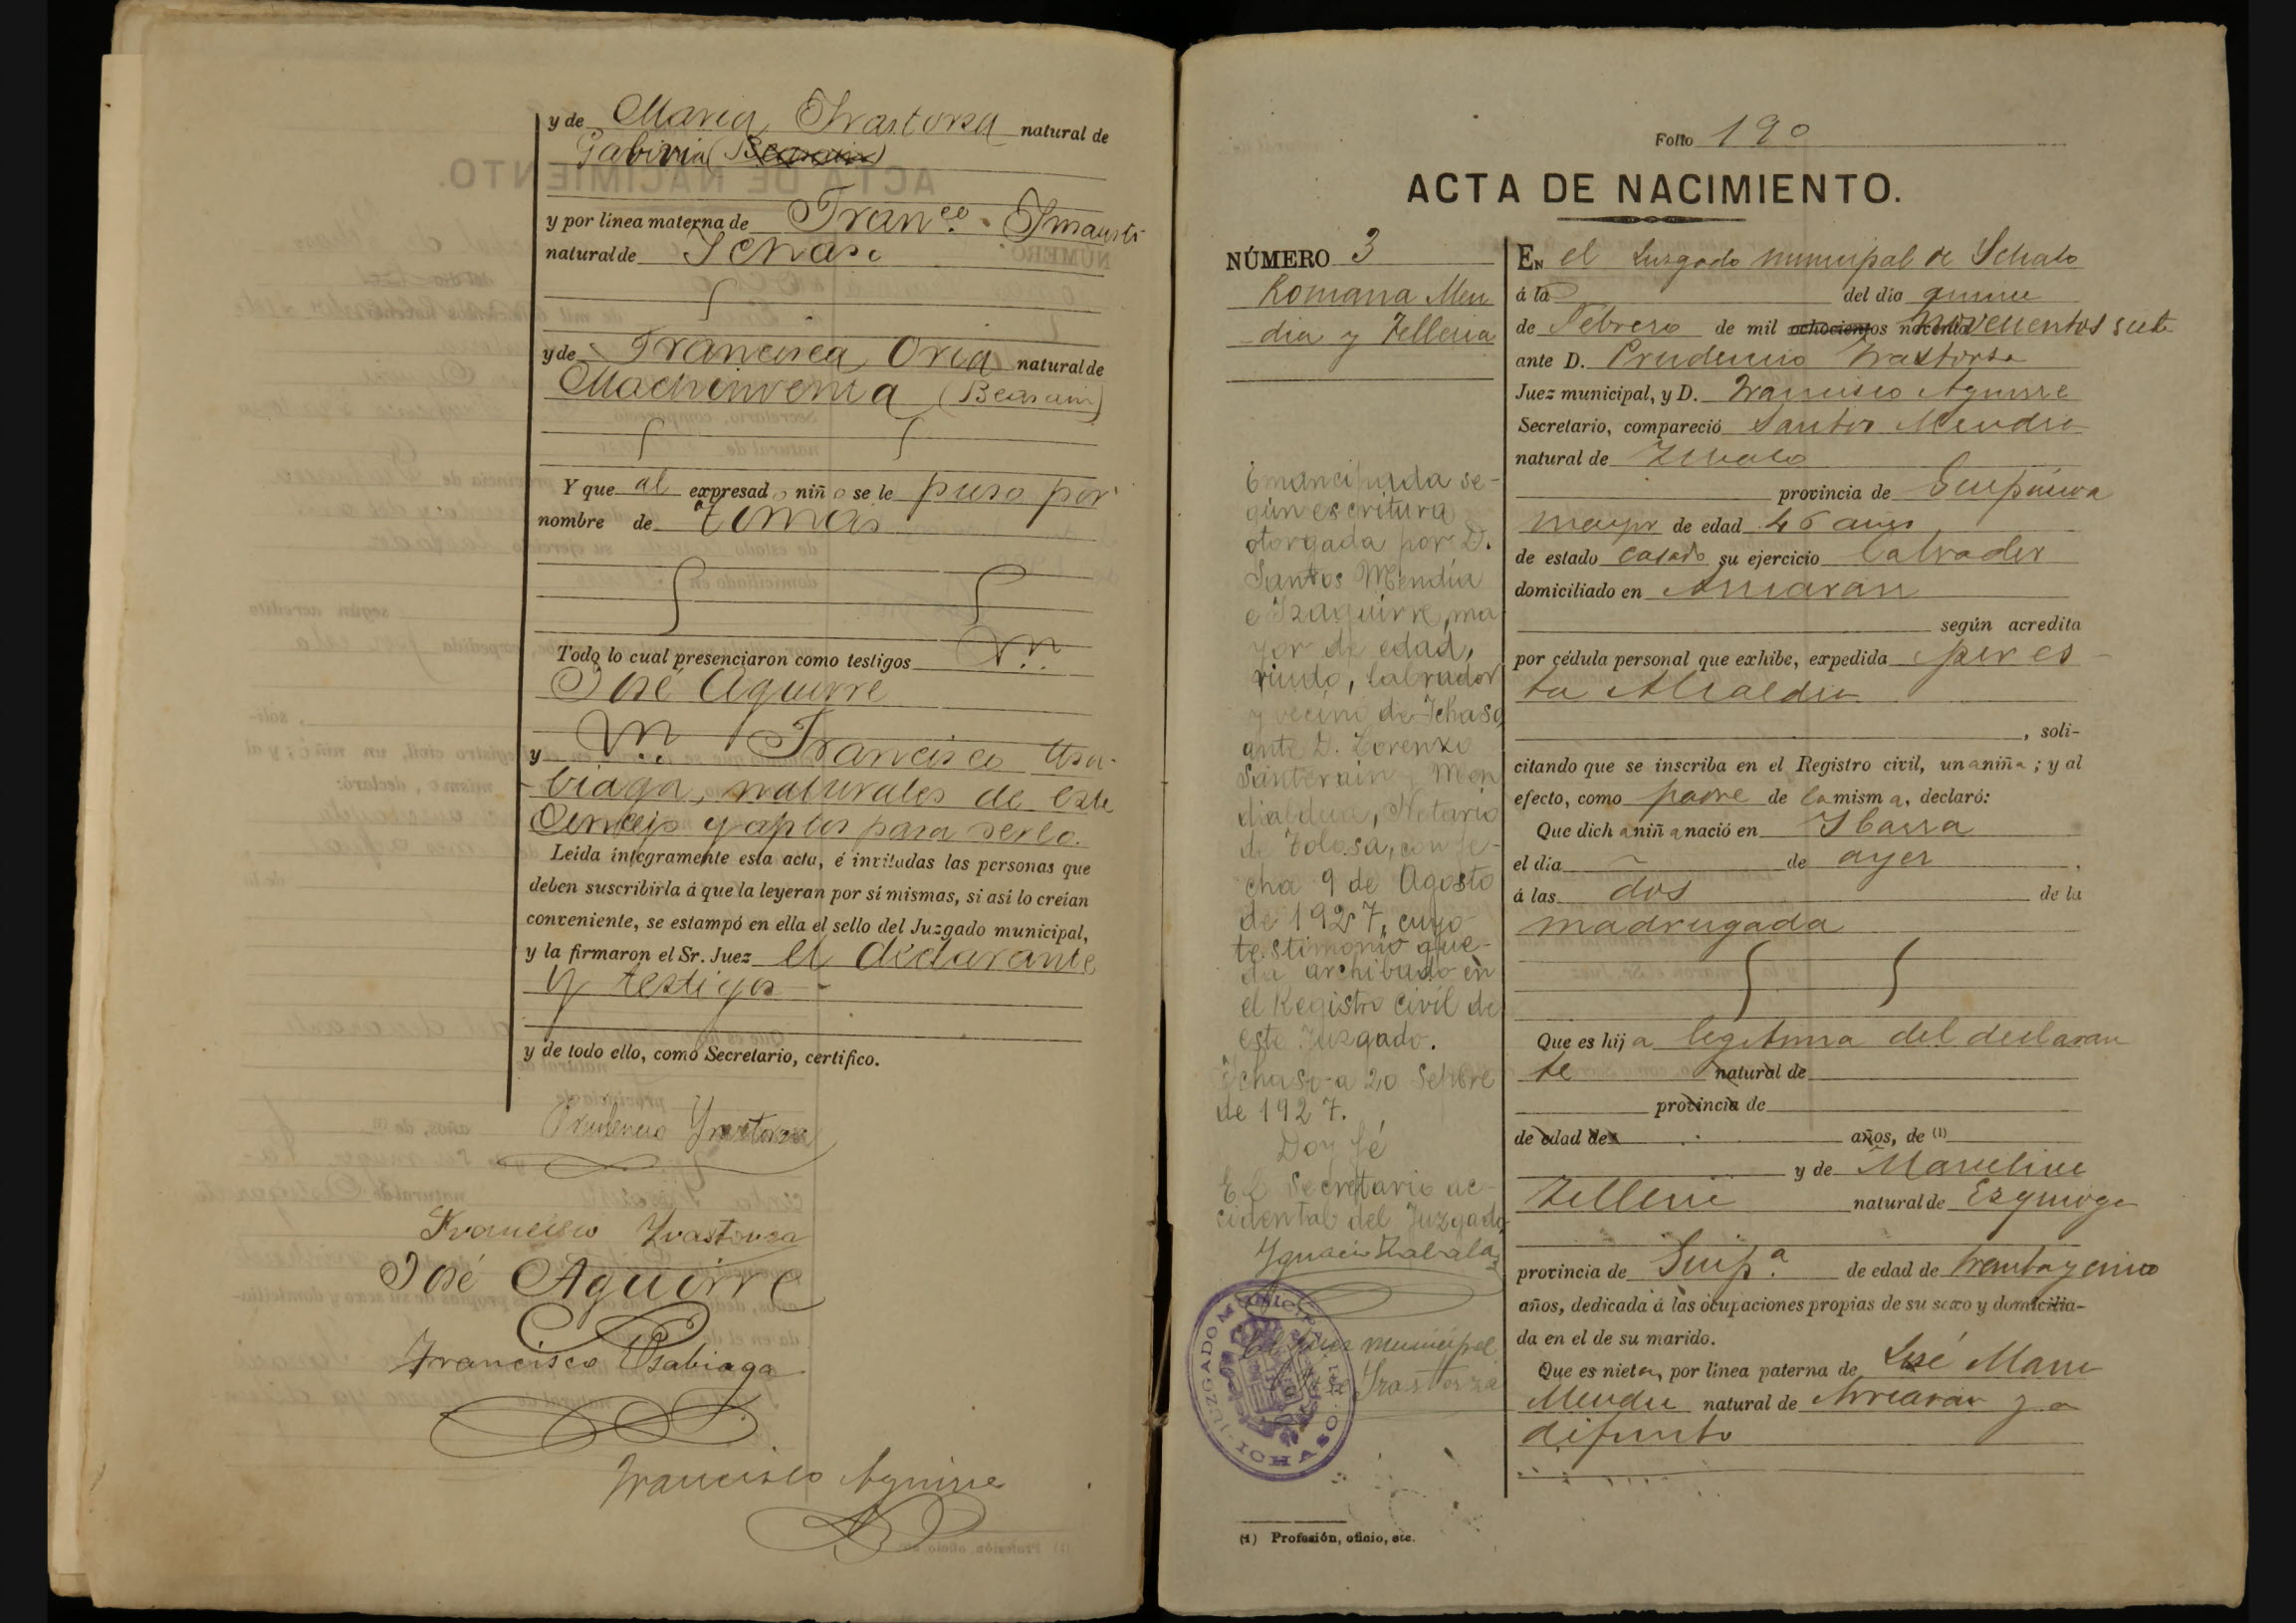 y de Maria Irastorza natural de
Gabiria (Beasain)
y por línea materna de Fran.co Imausti
natural de Ichaso
y de Francisca Oria natural de
Machinventa (Beasain)
Y que al expresado niño se le puso por
nombre de Tomás
Todo lo cual presenciaron como testigos
José Aguirre
y Francisco Usa-
biaga, naturales de este
Concejo y aptos para serlo.
Leída íntegramente esta acta, é invitadas las personas que
deben suscribirla á que la leyeran por sí mismas, si así lo creían
conveniente, se estampó en ella el sello del Juzgado municipal,
y la firmaron el Sr. Juez el declarante
y testigos
y de todo ello, como Secretario, certifico.
Prudencio Yrastorza
Francisco Yrastorza
José Aguirre
Francisco Usabiaga
Francisco Aguirre
Folio 190
ACTA DE NACIMIENTO.
NÚMERO 3
Romana Men
dia y Telleria
Emancipada se-
gún escritura
otorgada por D.
Santos Mendía
e Izaguirre, ma
yor de edad,
viudo, labrador
y vecino de Ichaso
ante D. Lorenzo
Santerain y Men
dialdua, Notario
de Tolosa, con fe-
cha 9 de Agosto
de 1927, cuyo
testimonio que-
da archibado en
el Registro civil de
este Juzgado.
Ichaso a 20 Setbre
de 1927.
Doy fé
El Secretario ac-
cidental del Juzgado
Ygnacio Zabala
El Juez municipal
Irastorza
JUZGADO MUNICIPAL ICHASO
(1) Profesión, oficio, etc.
EN el Juzgado municipal de Ichaso
á la del día quince
de Febrero de mil ochocientos noventa novecientos siete
ante D. Prudencio Irastorza
Juez municipal, y D. Francisco Aguirre
Secretario, compareció Santos Mendia
natural de Ichaso
provincia de Guipúzcoa
mayor de edad 46 años
de estado casado su ejercicio labrador
domiciliado en Arriaran
según acredita
por cédula personal que exhibe, expedida por es
ta Alcaldia
, soli-
citando que se inscriba en el Registro civil, una niña; y al
efecto, como padre de la misma, declaró:
Que dicha niña nació en Ibarra
el día de ayer
á las dos de la
madrugada
Que es hija legitima del declaran
te natural de
provincia de
de edad de años, de (1)
y de Marcelina
Telleria natural de Ezquioga
provincia de Guip.a de edad de treinta y cinco
años, dedicada á las ocupaciones propias de su sexo y domicilia-
da en el de su marido.
Que es nieta, por línea paterna de José Maria
Mendia natural de Arriaran ya
difunto